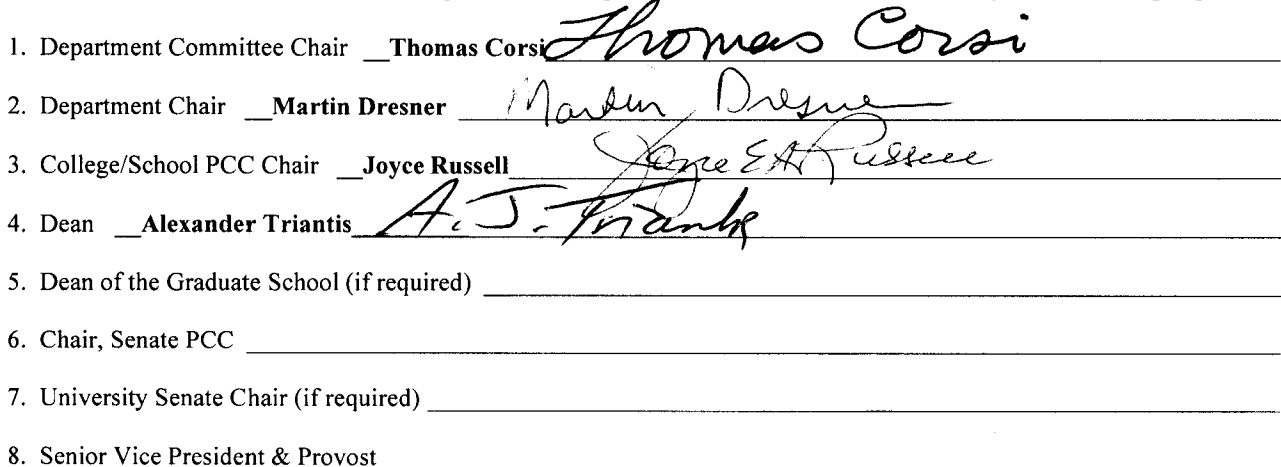 1. Department Committee Chair __Thomas Corsi Thomas Corsi
2. Department Chair __Martin Dresner Martin Dresner
3. College/School PCC Chair __Joyce Russell Joyce E A Russell
4. Dean __Alexander Triantis A. J. Triantis
5. Dean of the Graduate School (if required)
6. Chair, Senate PCC
7. University Senate Chair (if required)
8. Senior Vice President & Provost